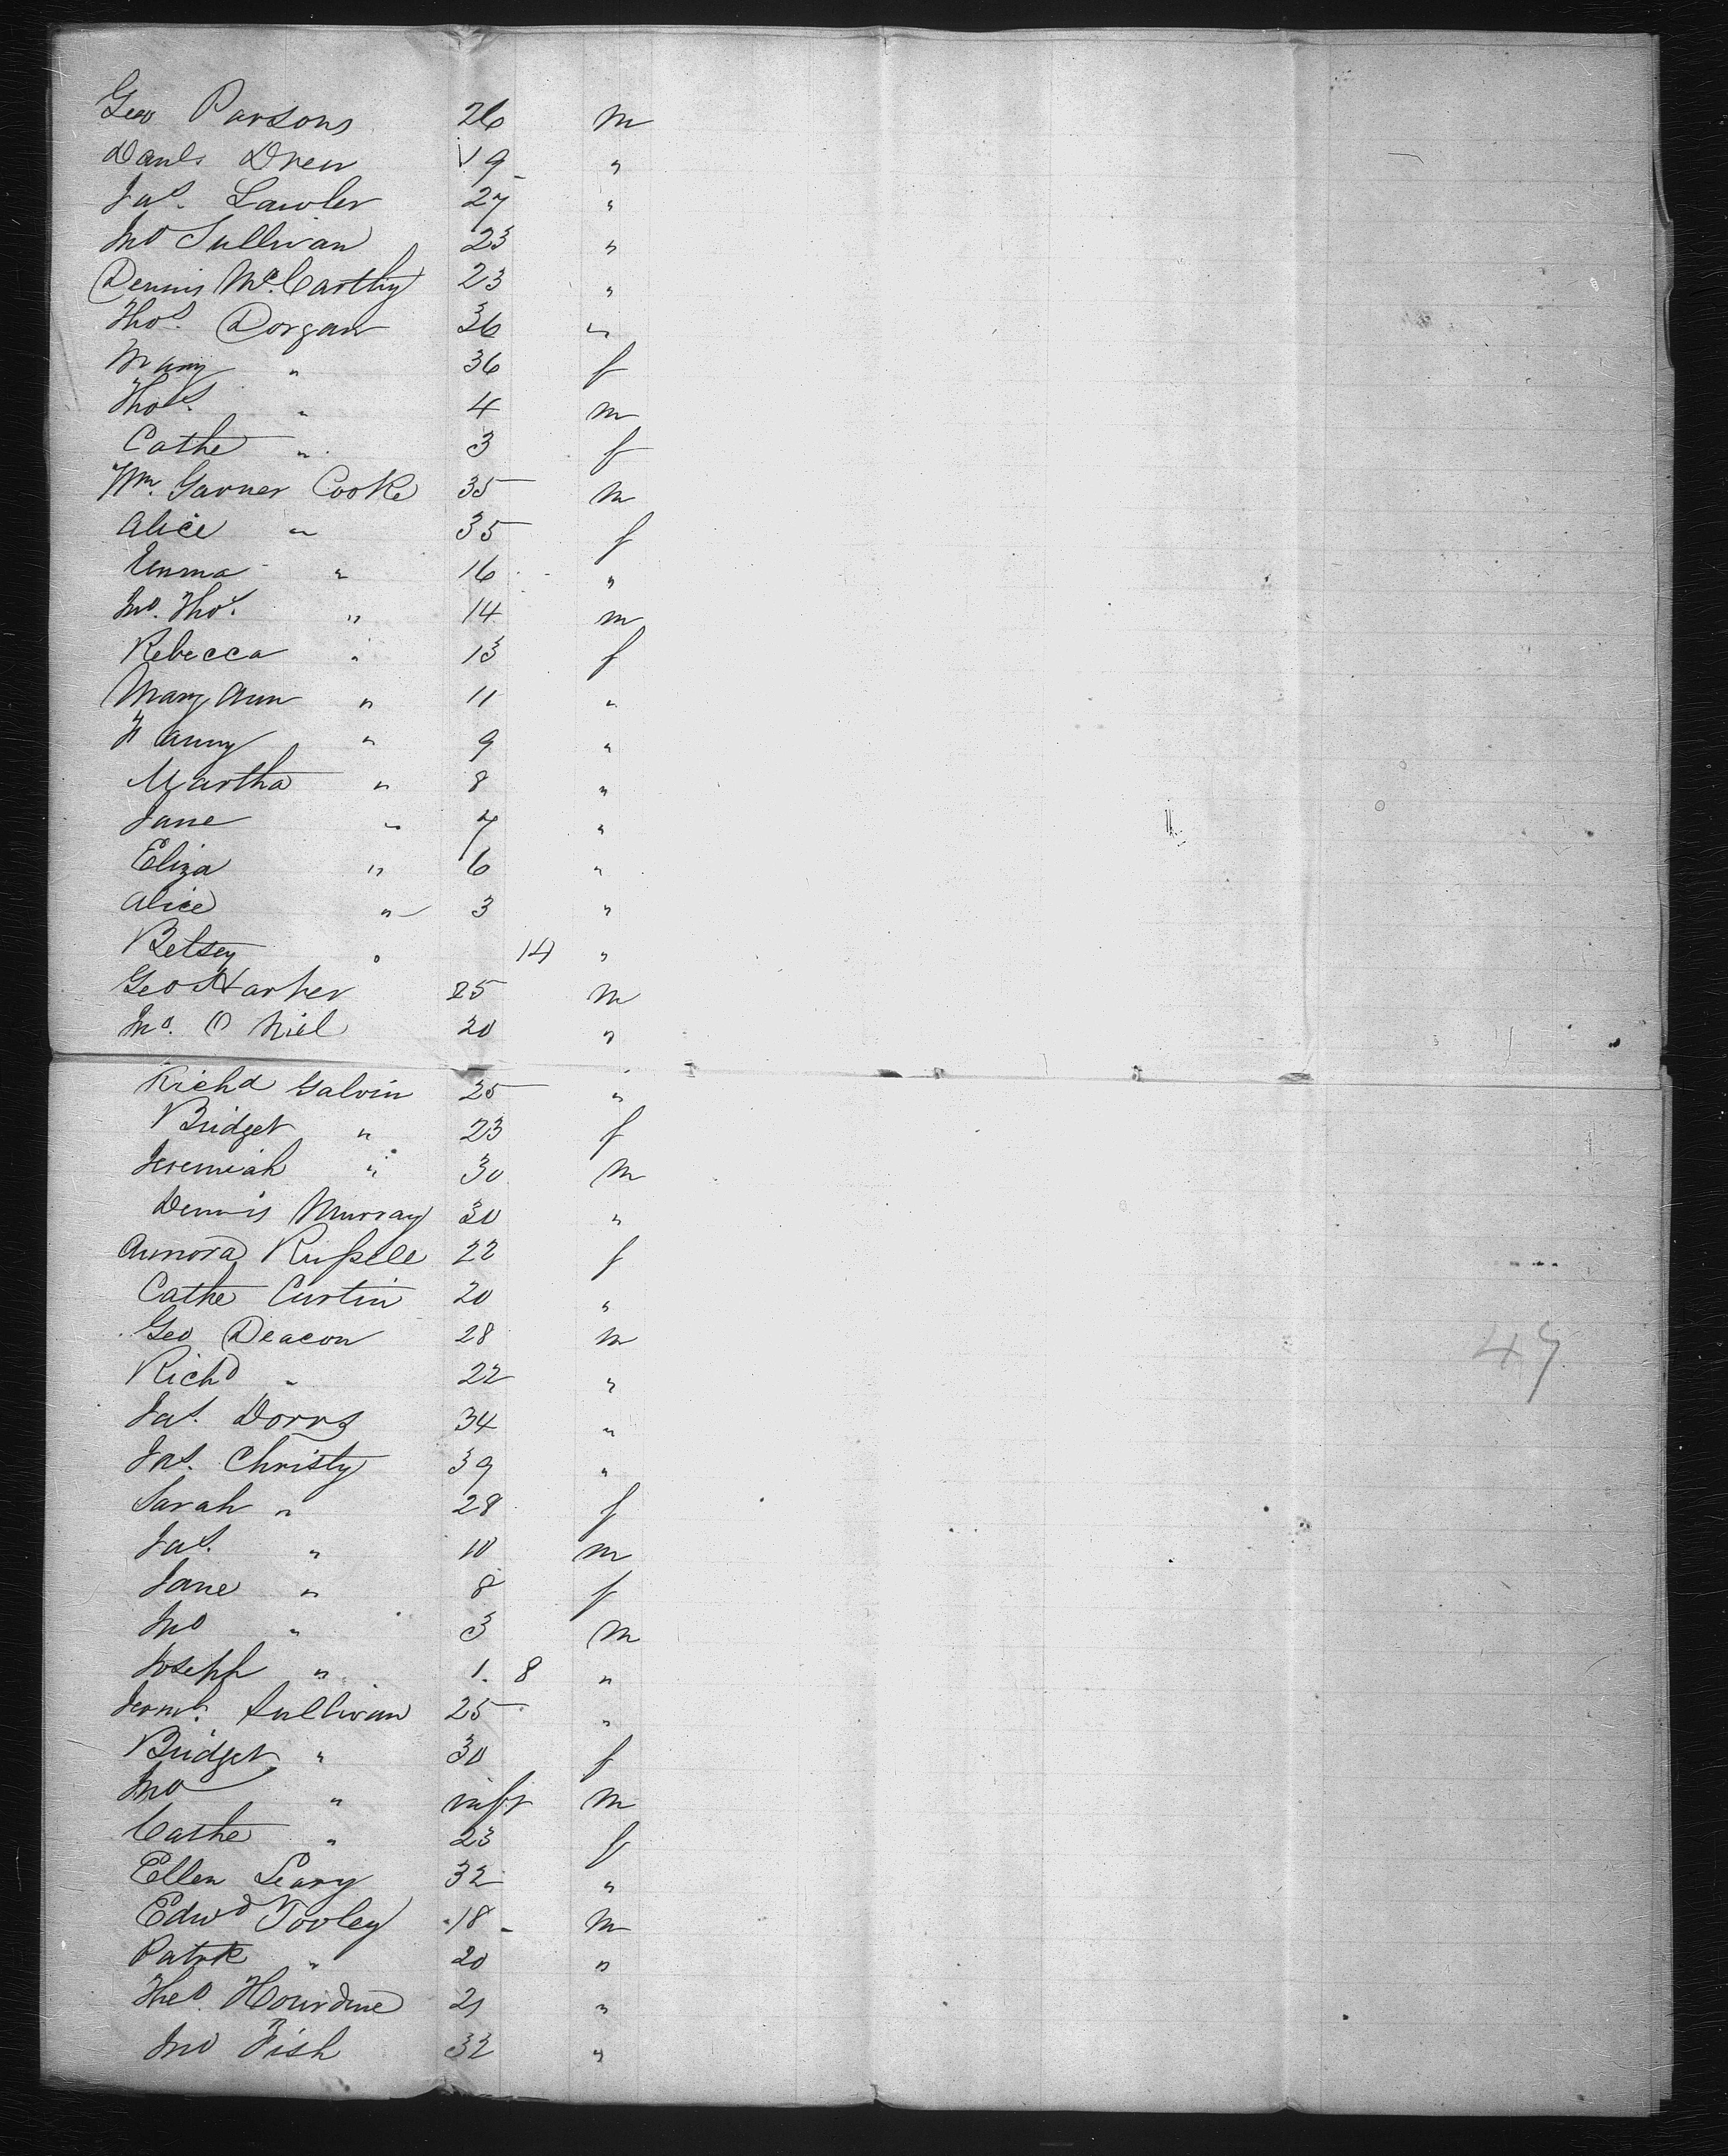 Geo Parsons 26 m
Danl. Drew 19 "
Jas. Lawler 27 "
Jno Sullivan 23 "
Dennis McCarthy 23 "
Thos. Dorgan 36 "
Mary " 36 f
Thos. " 4 m
Cathe " 3 f
Wm. Garner Cooke 35 m
Alice " 35 f
Emma " 16 "
Jno. Thos. " 14 m
Rebecca " 13 f
Mary Ann " 11 "
Fanny " 9 "
Martha " 8 "
Jane " 7 "
Eliza " 6 "
Alice " 3 "
Betsey " 14 "
Geo Harker 25 m
Jno. O Niel 20 "
Richd Galvin 25 "
Bridget " 23 f
Jeremiah " 30 m
Dennis Murray 30 "
Annora Russell 22 f
Cathe Curtin 20 "
Geo Deacon 28 m
Richd " 22 "
Jas. Dorrs 34 "
Jas. Christy 39 "
Sarah " 28 f
Jas. " 10 m
Jane " 8 f
Jno " 3 m
Joseph " 1. 8 "
Jermh. Sullivan 25 "
Bridget " 30 f
Jno " inft m
Cathe " 23 f
Ellen Leary 32 "
Edwd Tooley 18 m
Patrk " 20 "
Theo. Hourdine 21 "
Jno Fish 32 "
47